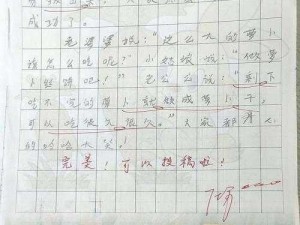 成功了。
老婆婆说："这么大的萝卜
该怎么吃呢？"小姑娘说："做萝
卜丝饼吧！"老公公说："剩下
吃不完的萝卜就做成萝卜干，
可以吃很久很久。"大家都开心
的哈哈大笑！
完美！可以投稿啦！